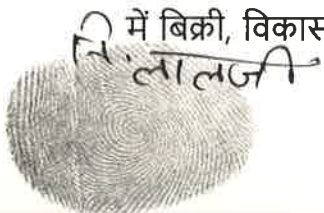 में बिक्री, विकास
नि. लालजी